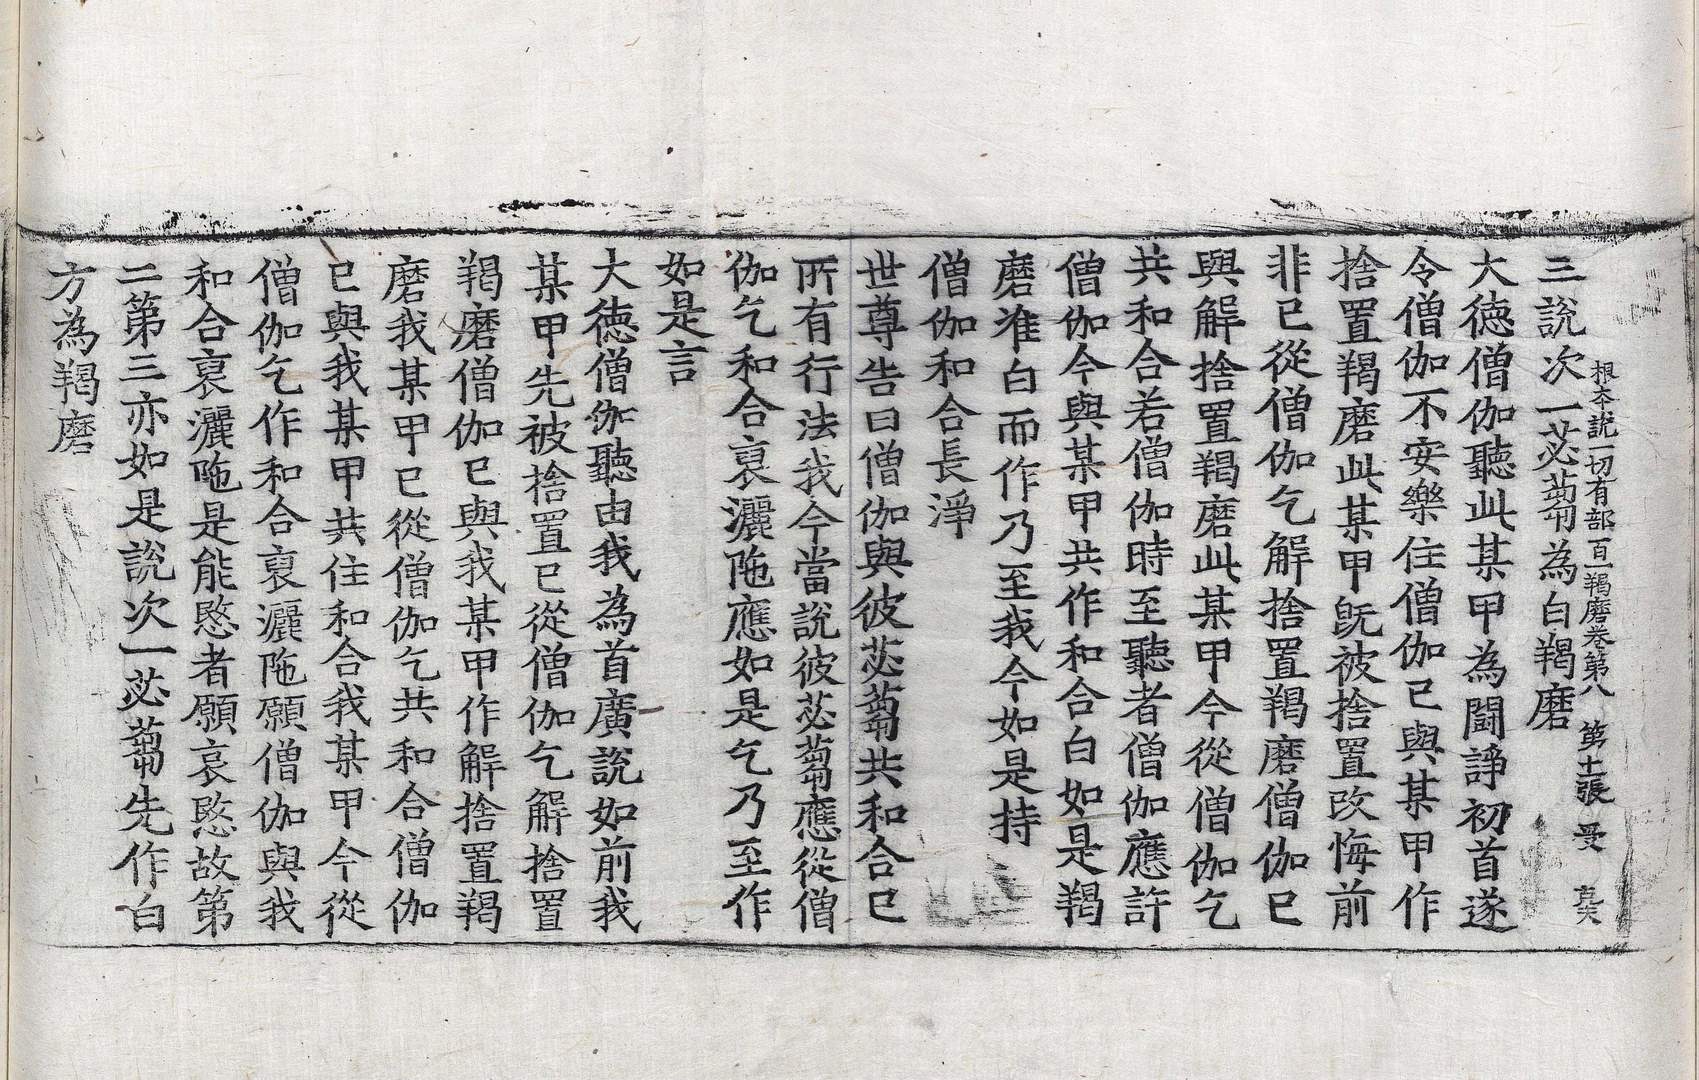 三說次一苾蒭為白羯磨
根本說一切有部百一羯磨卷第八 第十張 受
大德僧伽聽此某甲為鬪諍初首遂
令僧伽不安樂住僧伽已與某甲作
捨置羯磨此某甲既被捨置改悔前
非已從僧伽乞解捨置羯磨僧伽已
與解捨置羯磨此某甲今從僧伽乞
共和合若僧伽時至聽者僧伽應許
僧伽今與某甲共作和合白如是羯
磨准白而作乃至我今如是持
僧伽和合長淨
世尊告曰僧伽與彼苾蒭共和合已
所有行法我今當說彼苾蒭應從僧
伽乞和合褒灑陁應如是乞乃至作
如是言
大德僧伽聽由我為首廣說如前我
某甲先被捨置已從僧伽乞解捨置
羯磨僧伽已與我某甲作解捨置羯
磨我某甲已從僧伽乞共和合僧伽
已與我某甲共住和合我某甲今從
僧伽乞作和合褒灑陁願僧伽與我
和合褒灑陁是能愍者願哀愍故第
二第三亦如是說次一苾蒭先作白
方為羯磨